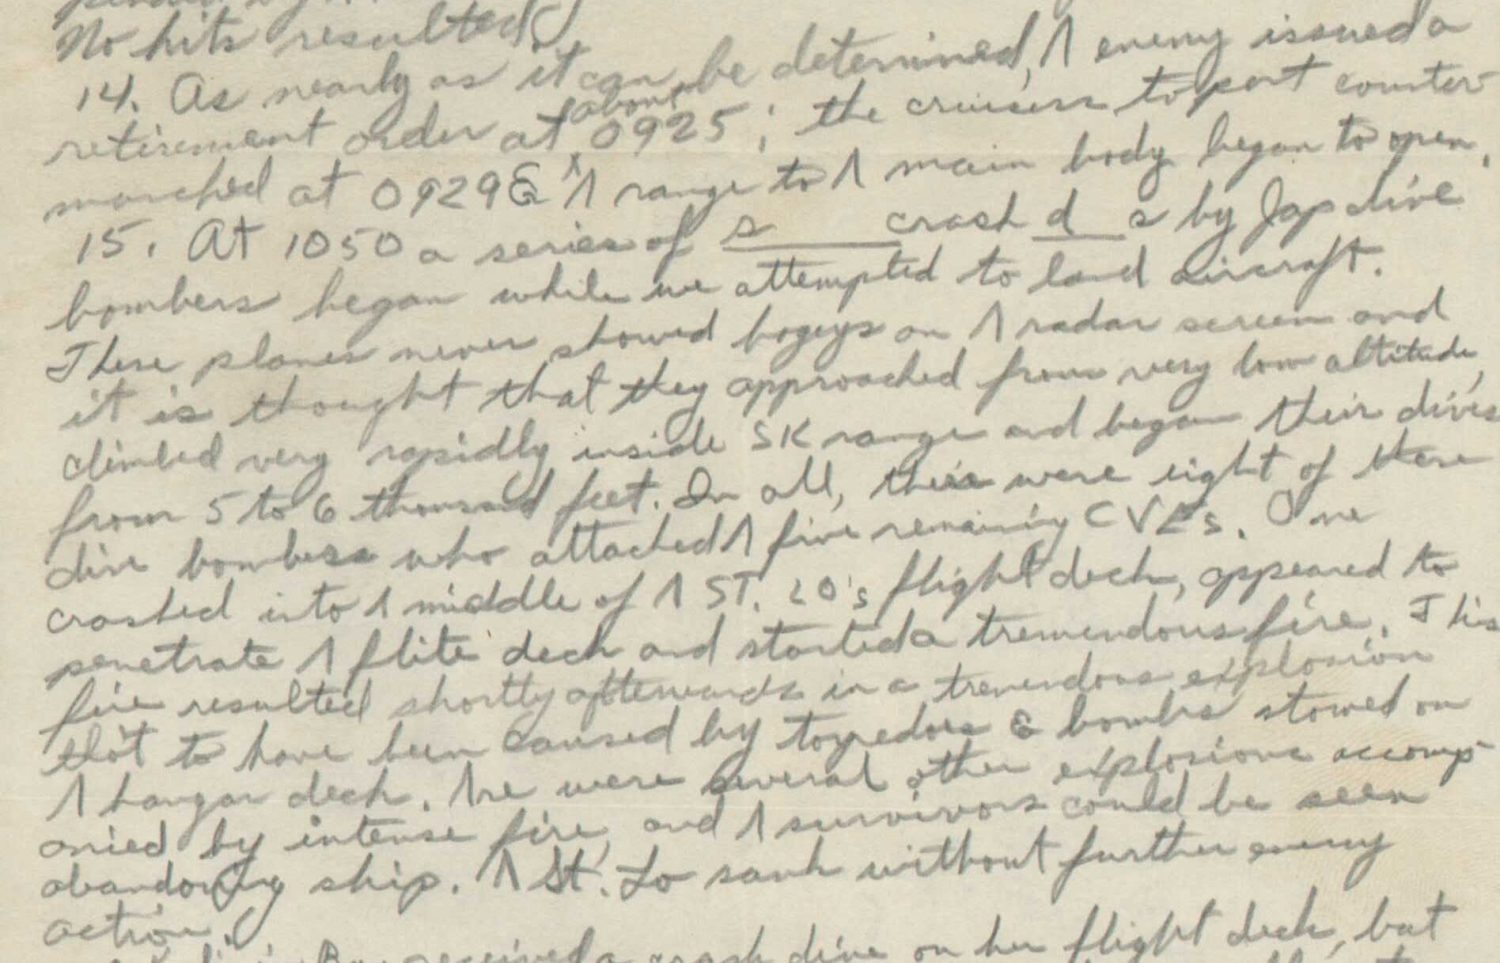 No hits resulted
14. As nearly as it can be determined, /\ enemy issued a
retirement order at about 0925; the cruisers to port counter
marched at 0929 & /\ range to /\ main body began to open.
15. At 1050 a series of s____ crash d__s by Jap dive
bombers began while we attempted to land aircraft.
These planes never showed bogeys on /\ radar screen and
it is thought that they approached from very low altitude,
climbed very rapidly inside SK range and began their dives
from 5 to 6 thousand feet. In all, there were eight of these
dive bombers who attacked /\ five remaining CVEs. One
crashed into /\ middle of /\ ST. LO's flight deck, appeared to
penetrate /\ flite deck and started a tremendous fire. This
fire resulted shortly afterwards in a tremendous explosion
tho't to have been caused by torpedoes & bombs stowed on
/\ hangar deck. /\re were several other explosions accomp-
anied by intense fire, and /\ survivors could be seen
abandoning ship. /\ St. Lo sank without further enemy
action.
received a crash dive on her flight deck, but